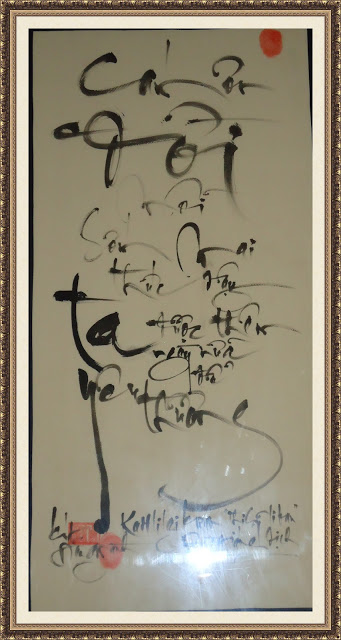 Cám ơn
đời
mỗi
Sớm mai
thức dậy
ta được thêm
ngày nữa
để
yêu thương
Kahlil Gibran
dịch